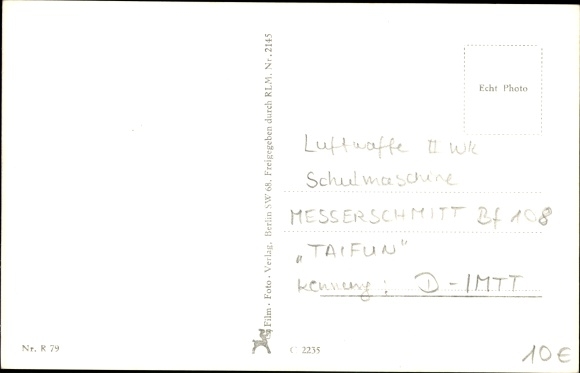 Echt Photo
Film - Foto - Verlag, Berlin SW 68, Freigegeben durch RLM. Nr. 2145
Luftwaffe II WK
Schulmaschine
MESSERSCHMITT Bf 108
„TAIFUN"
Kennung: D-IMTT
Nr. R 79
C 2235
10 €